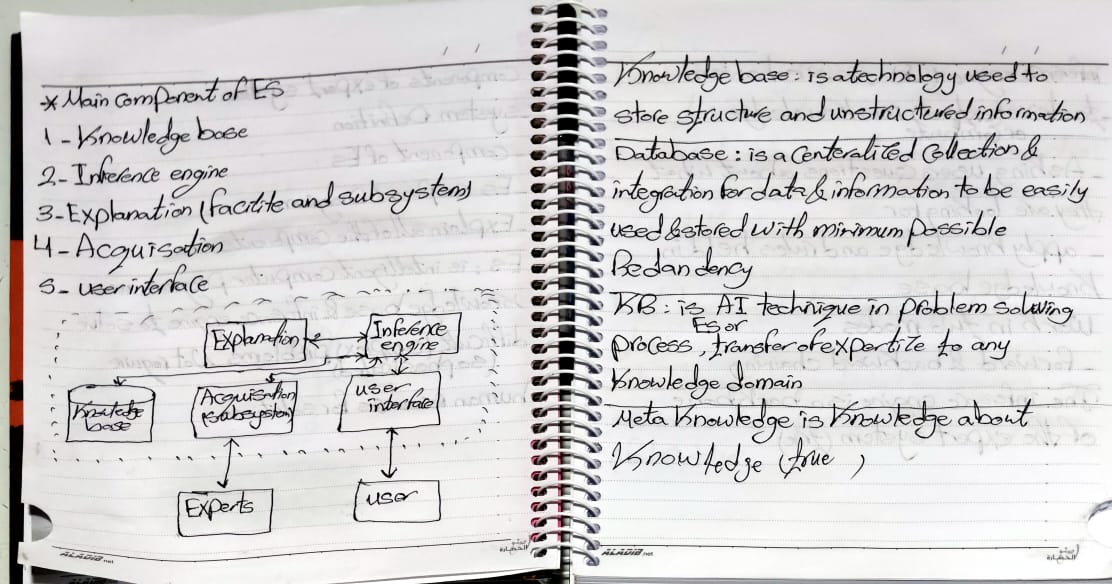 * Main component of ES
1 - Knowledge base
2 - Inference engine
3 - Explanation (facilite and subsystem)
4 - Acquisation
5 - user interface
Explanation
Inference
engine
Knowledge
base
Acquisation
(subsystem)
user
interface
Experts
user
ALADIB.net
Knowledge base : is a technology used to
store structure and unstructured information
Database : is a Centeralized Collection &
integration for data & information to be easily
used & stored with minimum possible
Redandency
KB : is AI technique in problem soluving
ES or
process , transfer of expertize to any
Knowledge domain
Meta Knowledge is Knowledge about
Knowledge (true )
ALADIB.net